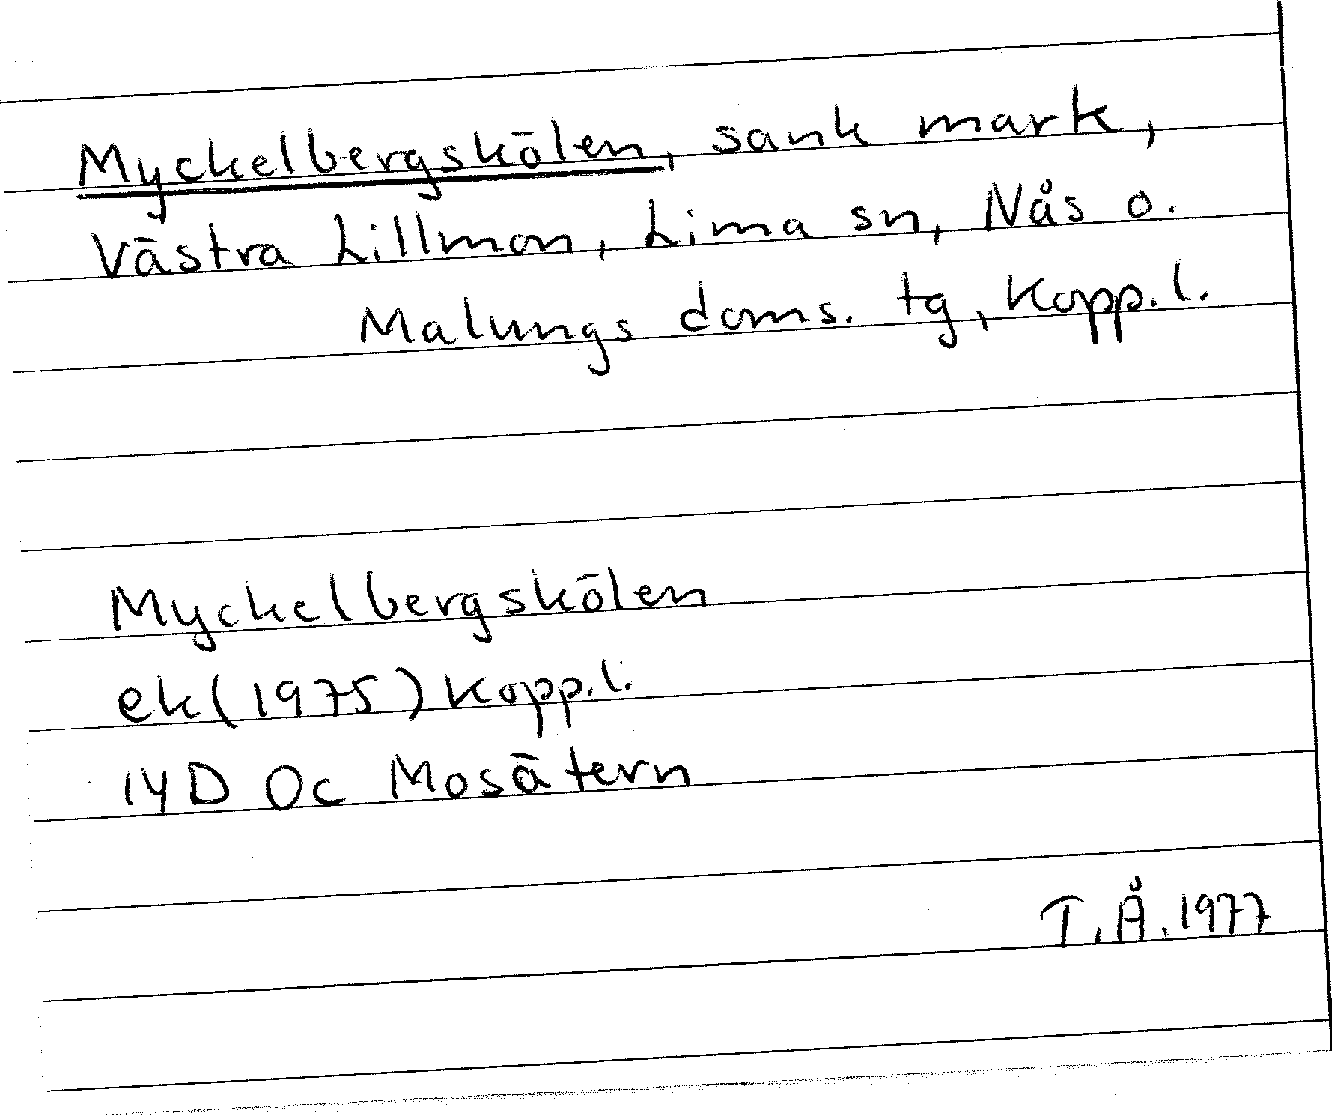 Myckelbergskölen, sank mark,
Västra Lillmon, Lima sn, Nås o.
Malungs doms. tg, Kopp.l.
Myckelbergskölen
ek(1975) Kopp.l.
14D 0c Mosätern
T.Å.1977